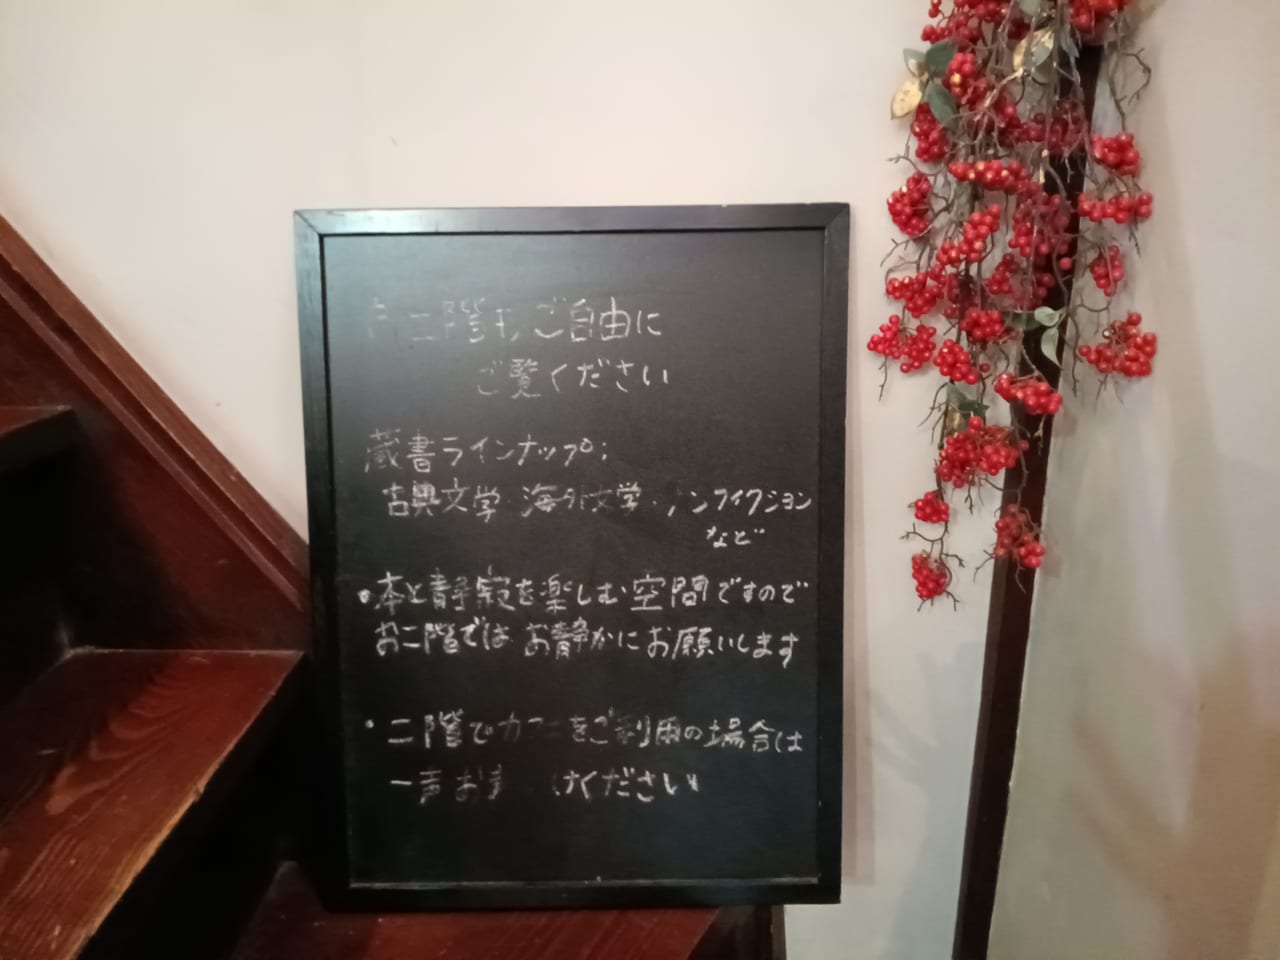 お二階も、ご自由に
ご覧ください
蔵書ラインナップ;
古典文学・海外文学・ノンフィクション
など
・本と静寂を楽しむ空間ですので
お二階では お静かにお願いします
・二階でカフェをご利用の場合は
一声お声 けください